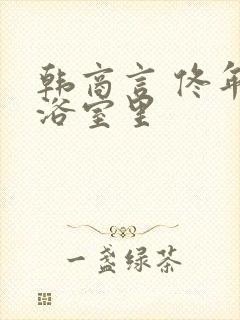 韩商言 佟年
浴室里
一盏绿茶